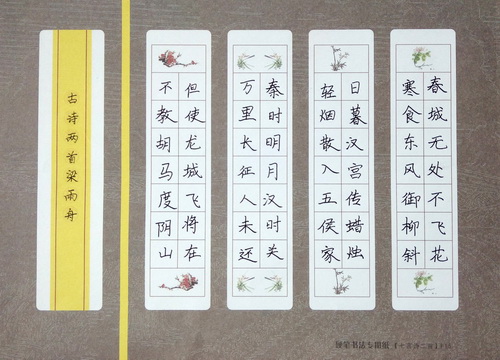 春城无处不飞花
寒食东风御柳斜
日暮汉宫传蜡烛
轻烟散入五侯家
秦时明月汉时关
万里长征人未还
但使龙城飞将在
不教胡马度阴山
古诗两首梁雨舟
硬笔书法专用纸